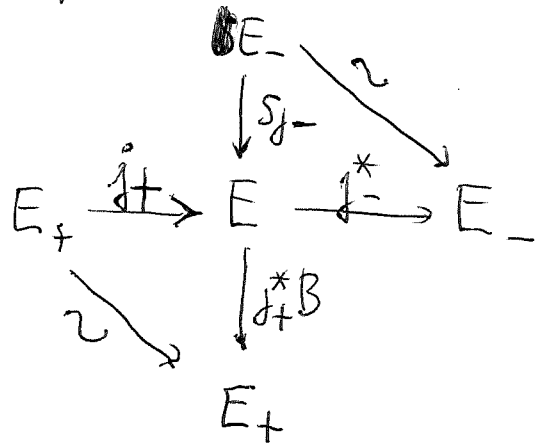 E_-
S j_- ~
E_+ j_+ E j_-^* E_-
~ j_+^* B
E_+